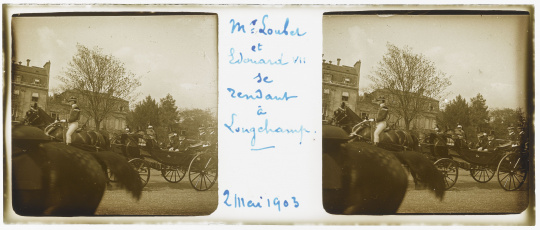 Mr. Loubet
et
Edouard VII
se
rendant
à
Longchamp.
2 Mai 1903